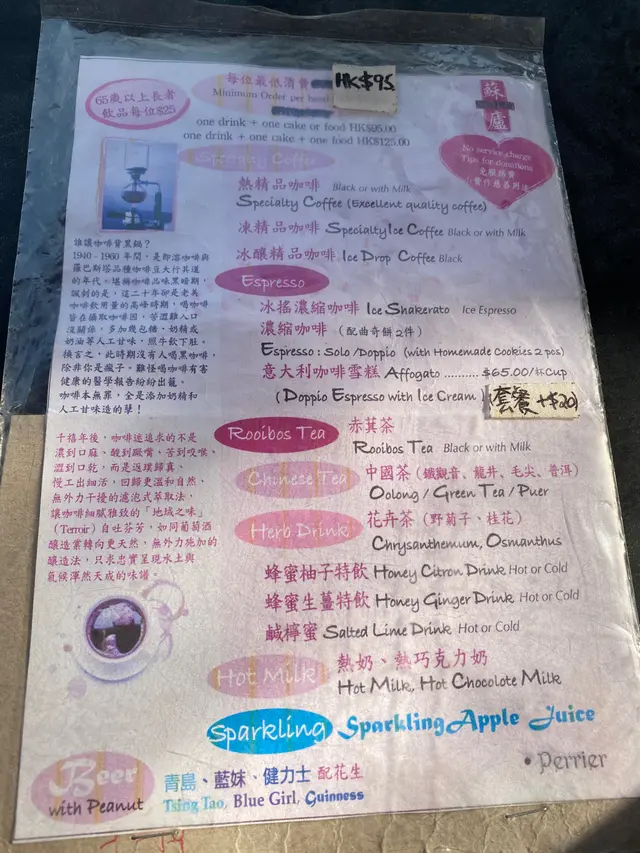 每位最低消費
HK$95
Minimum Order per head
65歲以上長者
飲品每位$25
蘇
廬
one drink + one cake or food HK$95.00
one drink + one cake + one food HK$125.00
No service charge
Tips for donations
免服務費
小費作慈善用途
Specialty Coffee
熱精品咖啡 Black or with Milk
Specialty Coffee (Excellent quality coffee)
凍精品咖啡 Specialty Ice Coffee Black or with Milk
冰釀精品咖啡 Ice Drop Coffee Black
Espresso
冰搖濃縮咖啡 Ice Shakerato Ice Espresso
濃縮咖啡 (配曲奇餅2件)
Espresso : Solo /Doppio (with Homemade Cookies 2 pcs)
意大利咖啡雪糕 Affogato .......... $65.00/Cup
(Doppio Espresso with Ice Cream)
套餐 +$20
誰讓咖啡背黑鍋?
1940 - 1960 年間,是即溶咖啡與
羅巴斯塔品種咖啡豆大行其道
的年代。堪稱咖啡品味黑暗期,
諷刺的是,這二十年卻是老美
咖啡飲用量的高峰時期,喝咖啡
旨在攝取咖啡因,苦澀難入口
沒關係,多加幾包糖、奶精或
奶油等人工甘味,照牛飲下肚。
換言之,此時期沒有人喝黑咖啡,
除非你是瘋子。難怪喝咖啡有害
健康的醫學報告紛紛出籠。
咖啡本無罪,全是添加奶精和
人工甘味造的孽!
千禧年後,咖啡迷追求的不是
濃到口麻、酸到噘嘴、苦到咬喉、
澀到口乾,而是返璞歸真、
慢工出細活,回歸更溫和自然、
無外力干擾的濾泡式萃取法,
讓咖啡細膩雅致的「地域之味」
(Terroir) 自吐芬芳,如同葡萄酒
釀造業轉向更天然,無外力施加的
釀造法,只求忠實呈現水土與
氣候渾然天成的味譜。
Rooibos Tea
赤萁茶
Rooibos Tea Black or with Milk
Chinese Tea
中國茶 (鐵觀音、龍井、毛尖、普洱)
Oolong / Green Tea / Puer
Herb Drink
花卉茶 (野菊子、桂花)
Chrysanthemum, Osmanthus
蜂蜜柚子特飲 Honey Citron Drink Hot or Cold
蜂蜜生薑特飲 Honey Ginger Drink Hot or Cold
鹹檸蜜 Salted Lime Drink Hot or Cold
Hot Milk
熱奶、熱巧克力奶
Hot Milk, Hot Chocolate Milk
Sparkling
Sparkling Apple Juice
• Perrier
Beer
with Peanut
青島、藍妹、健力士 配花生
Tsing Tao, Blue Girl, Guinness